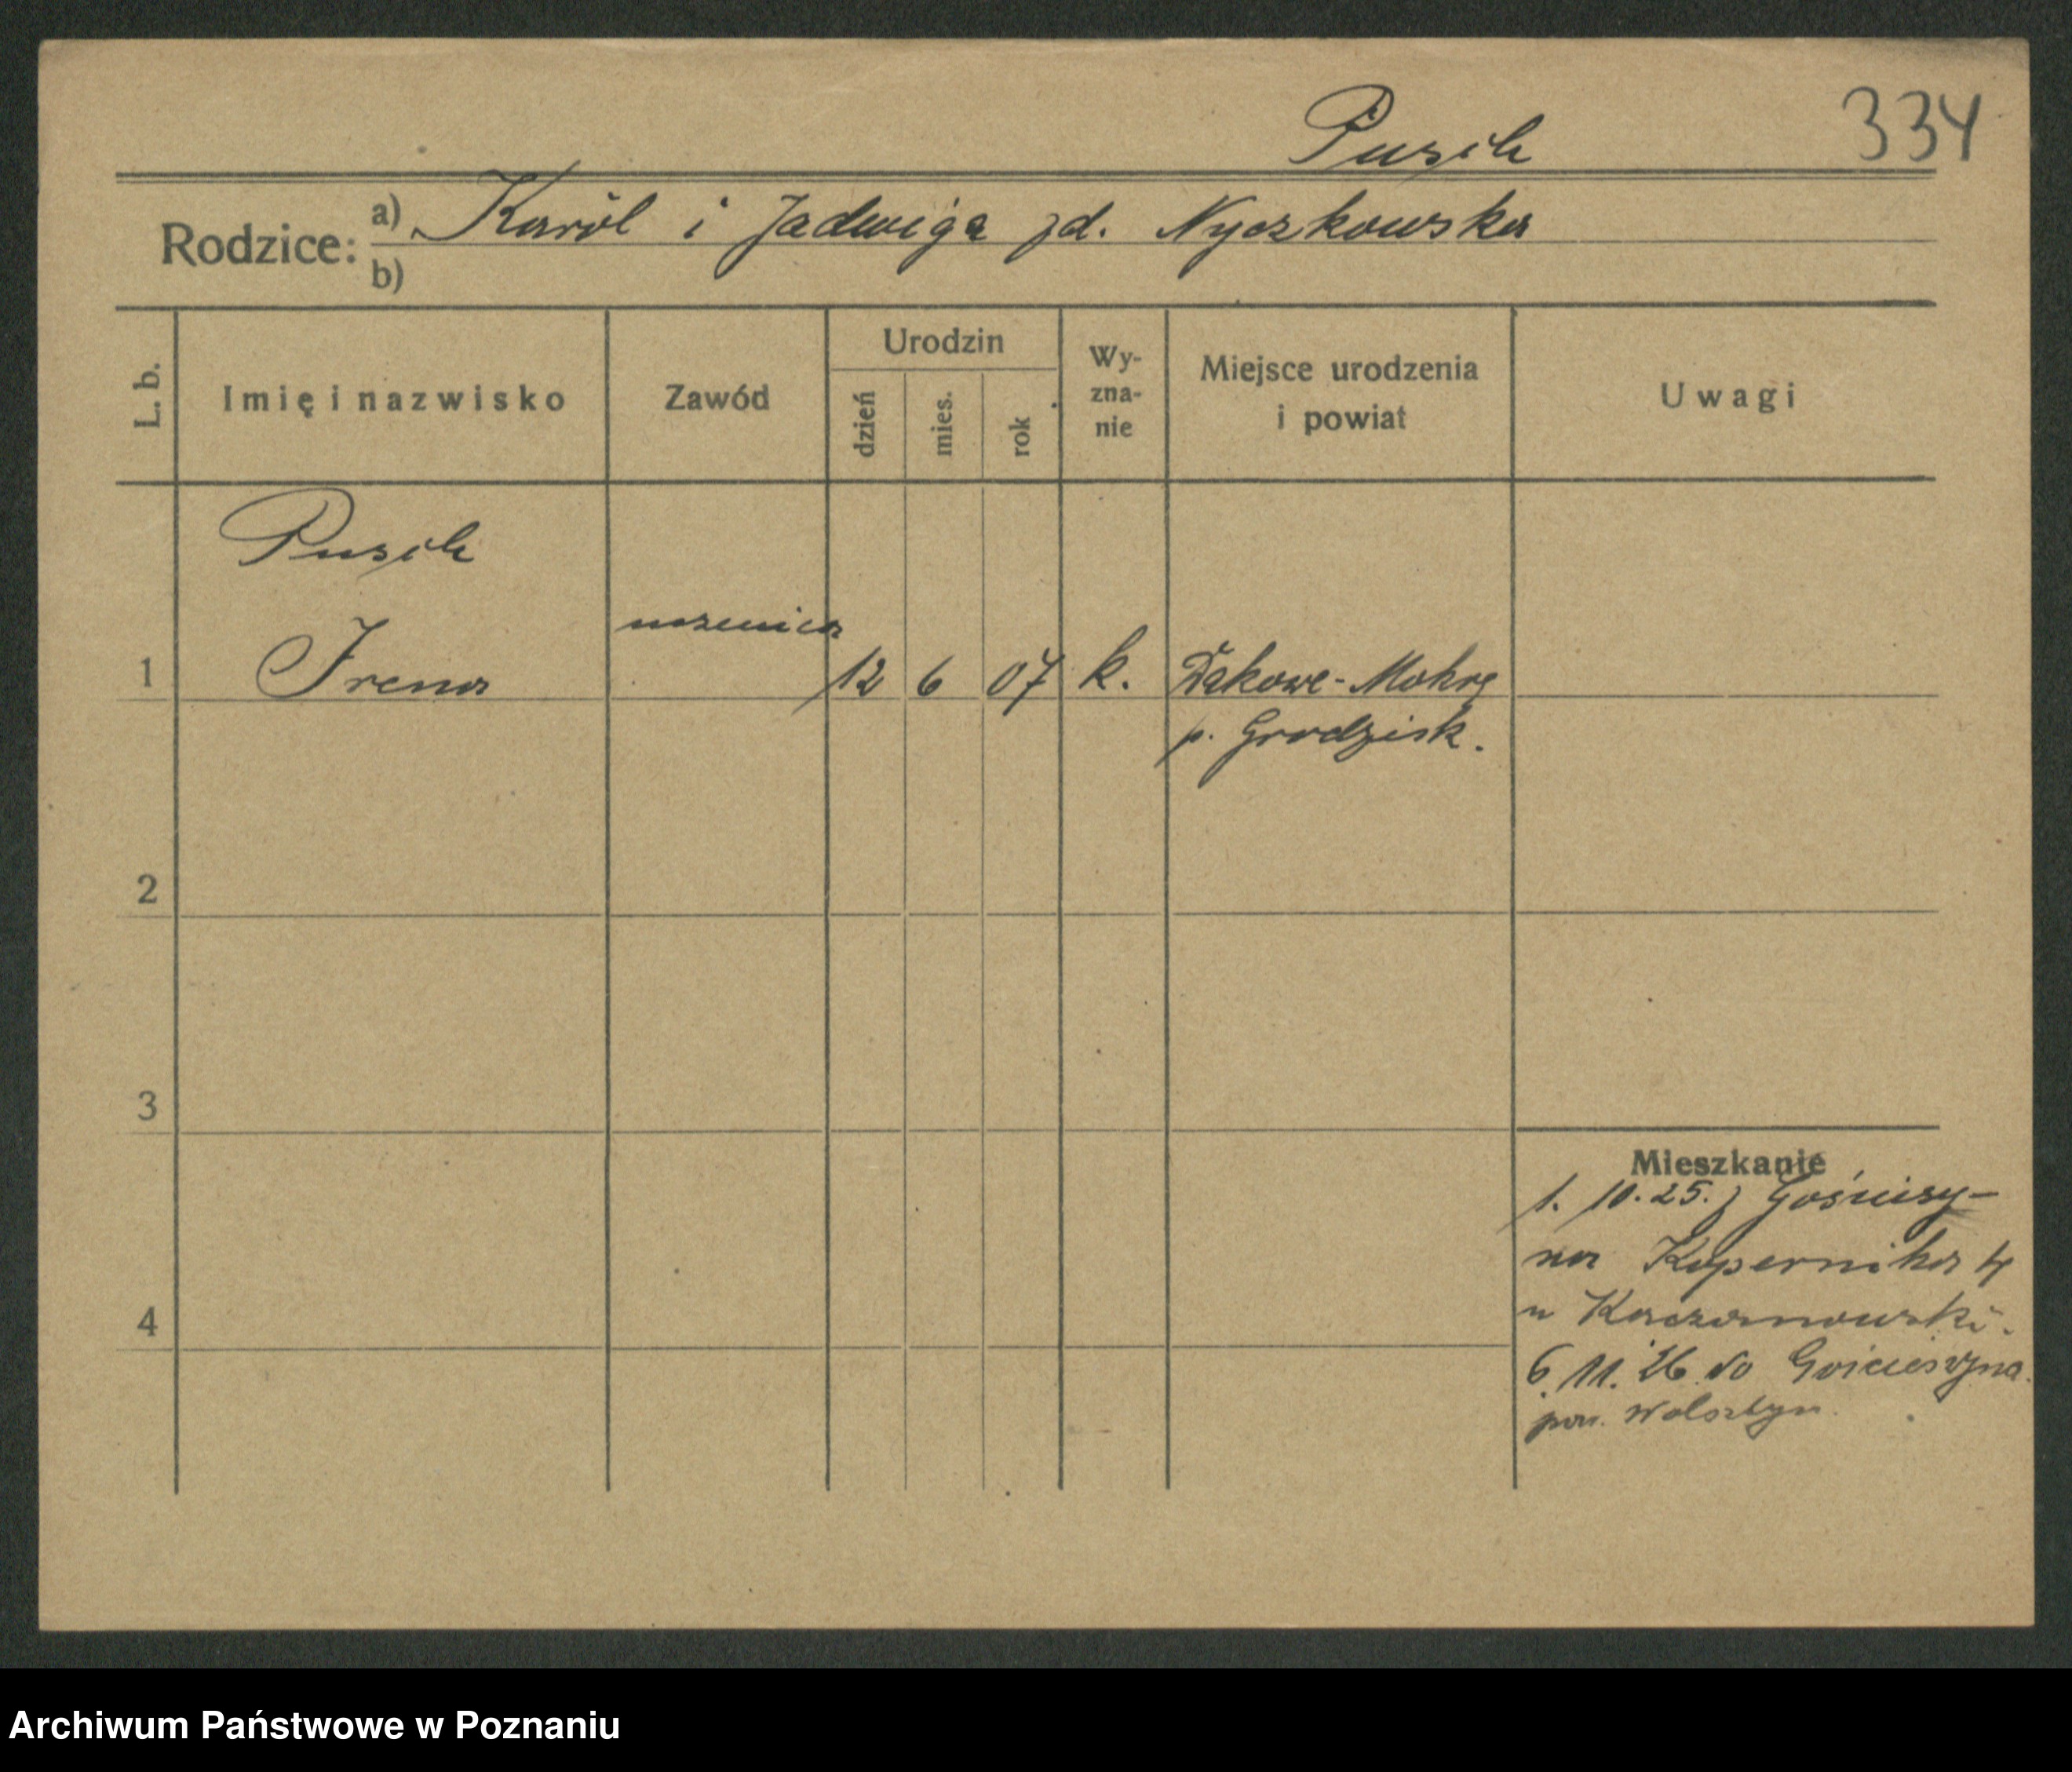 Pusik 334
Rodzice: a) Karól i Jadwiga zd. Nyczkowska
b)
L. b. Imię i nazwisko Zawód Urodzin dzień mies. rok Wy-zna-nie Miejsce urodzenia i powiat Uwagi
Pusik
uczenica
1 Irena 12 6 07 k. Dakowe-Mokre
p. Grodzisk.
2
3
Mieszkanie
1. 10. 25. z Gościeszy-
na Kopernika 4
4
u Kaczanowski.
6. 11. 26 do Gościeszyna
pow. Wolsztyn.
Archiwum Państwowe w Poznaniu